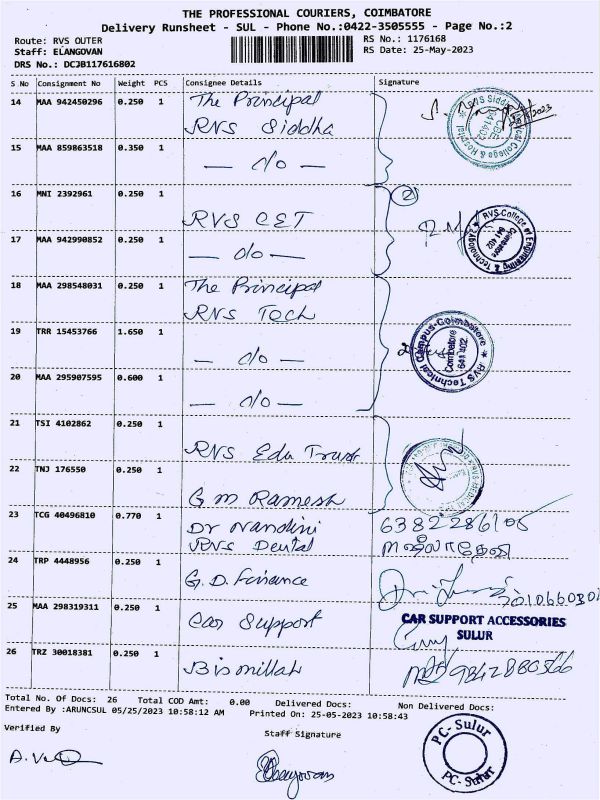 THE PROFESSIONAL COURIERS, COIMBATORE
Delivery Runsheet - SUL - Phone No.:0422-3505555 - Page No.:2
Route: RVS OUTER
Staff: ELANGOVAN
DRS No.: DCJB117616802
RS No.: 1176168
RS Date: 25-May-2023
S No Consignment No Weight PCS Consignee Details Signature
14 MAA 942450296 0.250 1 The Principal
RVS Siddha
15 MAA 859863518 0.350 1 — do —
16 MNI 2392961 0.250 1 RVS CET
17 MAA 942990852 0.250 1 — do —
18 MAA 298548031 0.250 1 The Principal
RVS Tech
19 TRR 15453766 1.650 1 — do —
20 MAA 295907595 0.600 1 — do —
21 TSI 4102862 0.250 1 RVS Edu Trust
22 TNJ 176550 0.250 1 G M Ramesh
23 TCG 40496810 0.770 1 Dr Nandini
RVS Dental
24 TRP 4448956 0.250 1 G.D. Finance
25 MAA 298319311 0.250 1 Car Support
26 TRZ 30018381 0.250 1 Bismillah
2
RVS College of Engineering & Technology
Coimbatore
641 402
RVS Technical Campus-Coimbatore
Coimbatore
641 402
CAR SUPPORT ACCESSORIES
SULUR
9842880566
Total No. Of Docs: 26 Total COD Amt: 0.00 Delivered Docs: Non Delivered Docs:
Entered By :ARUNCSUL 05/25/2023 10:58:12 AM Printed On: 25-05-2023 10:58:43
Verified By
Staff Signature
PC- Sulur
PC- Sulur